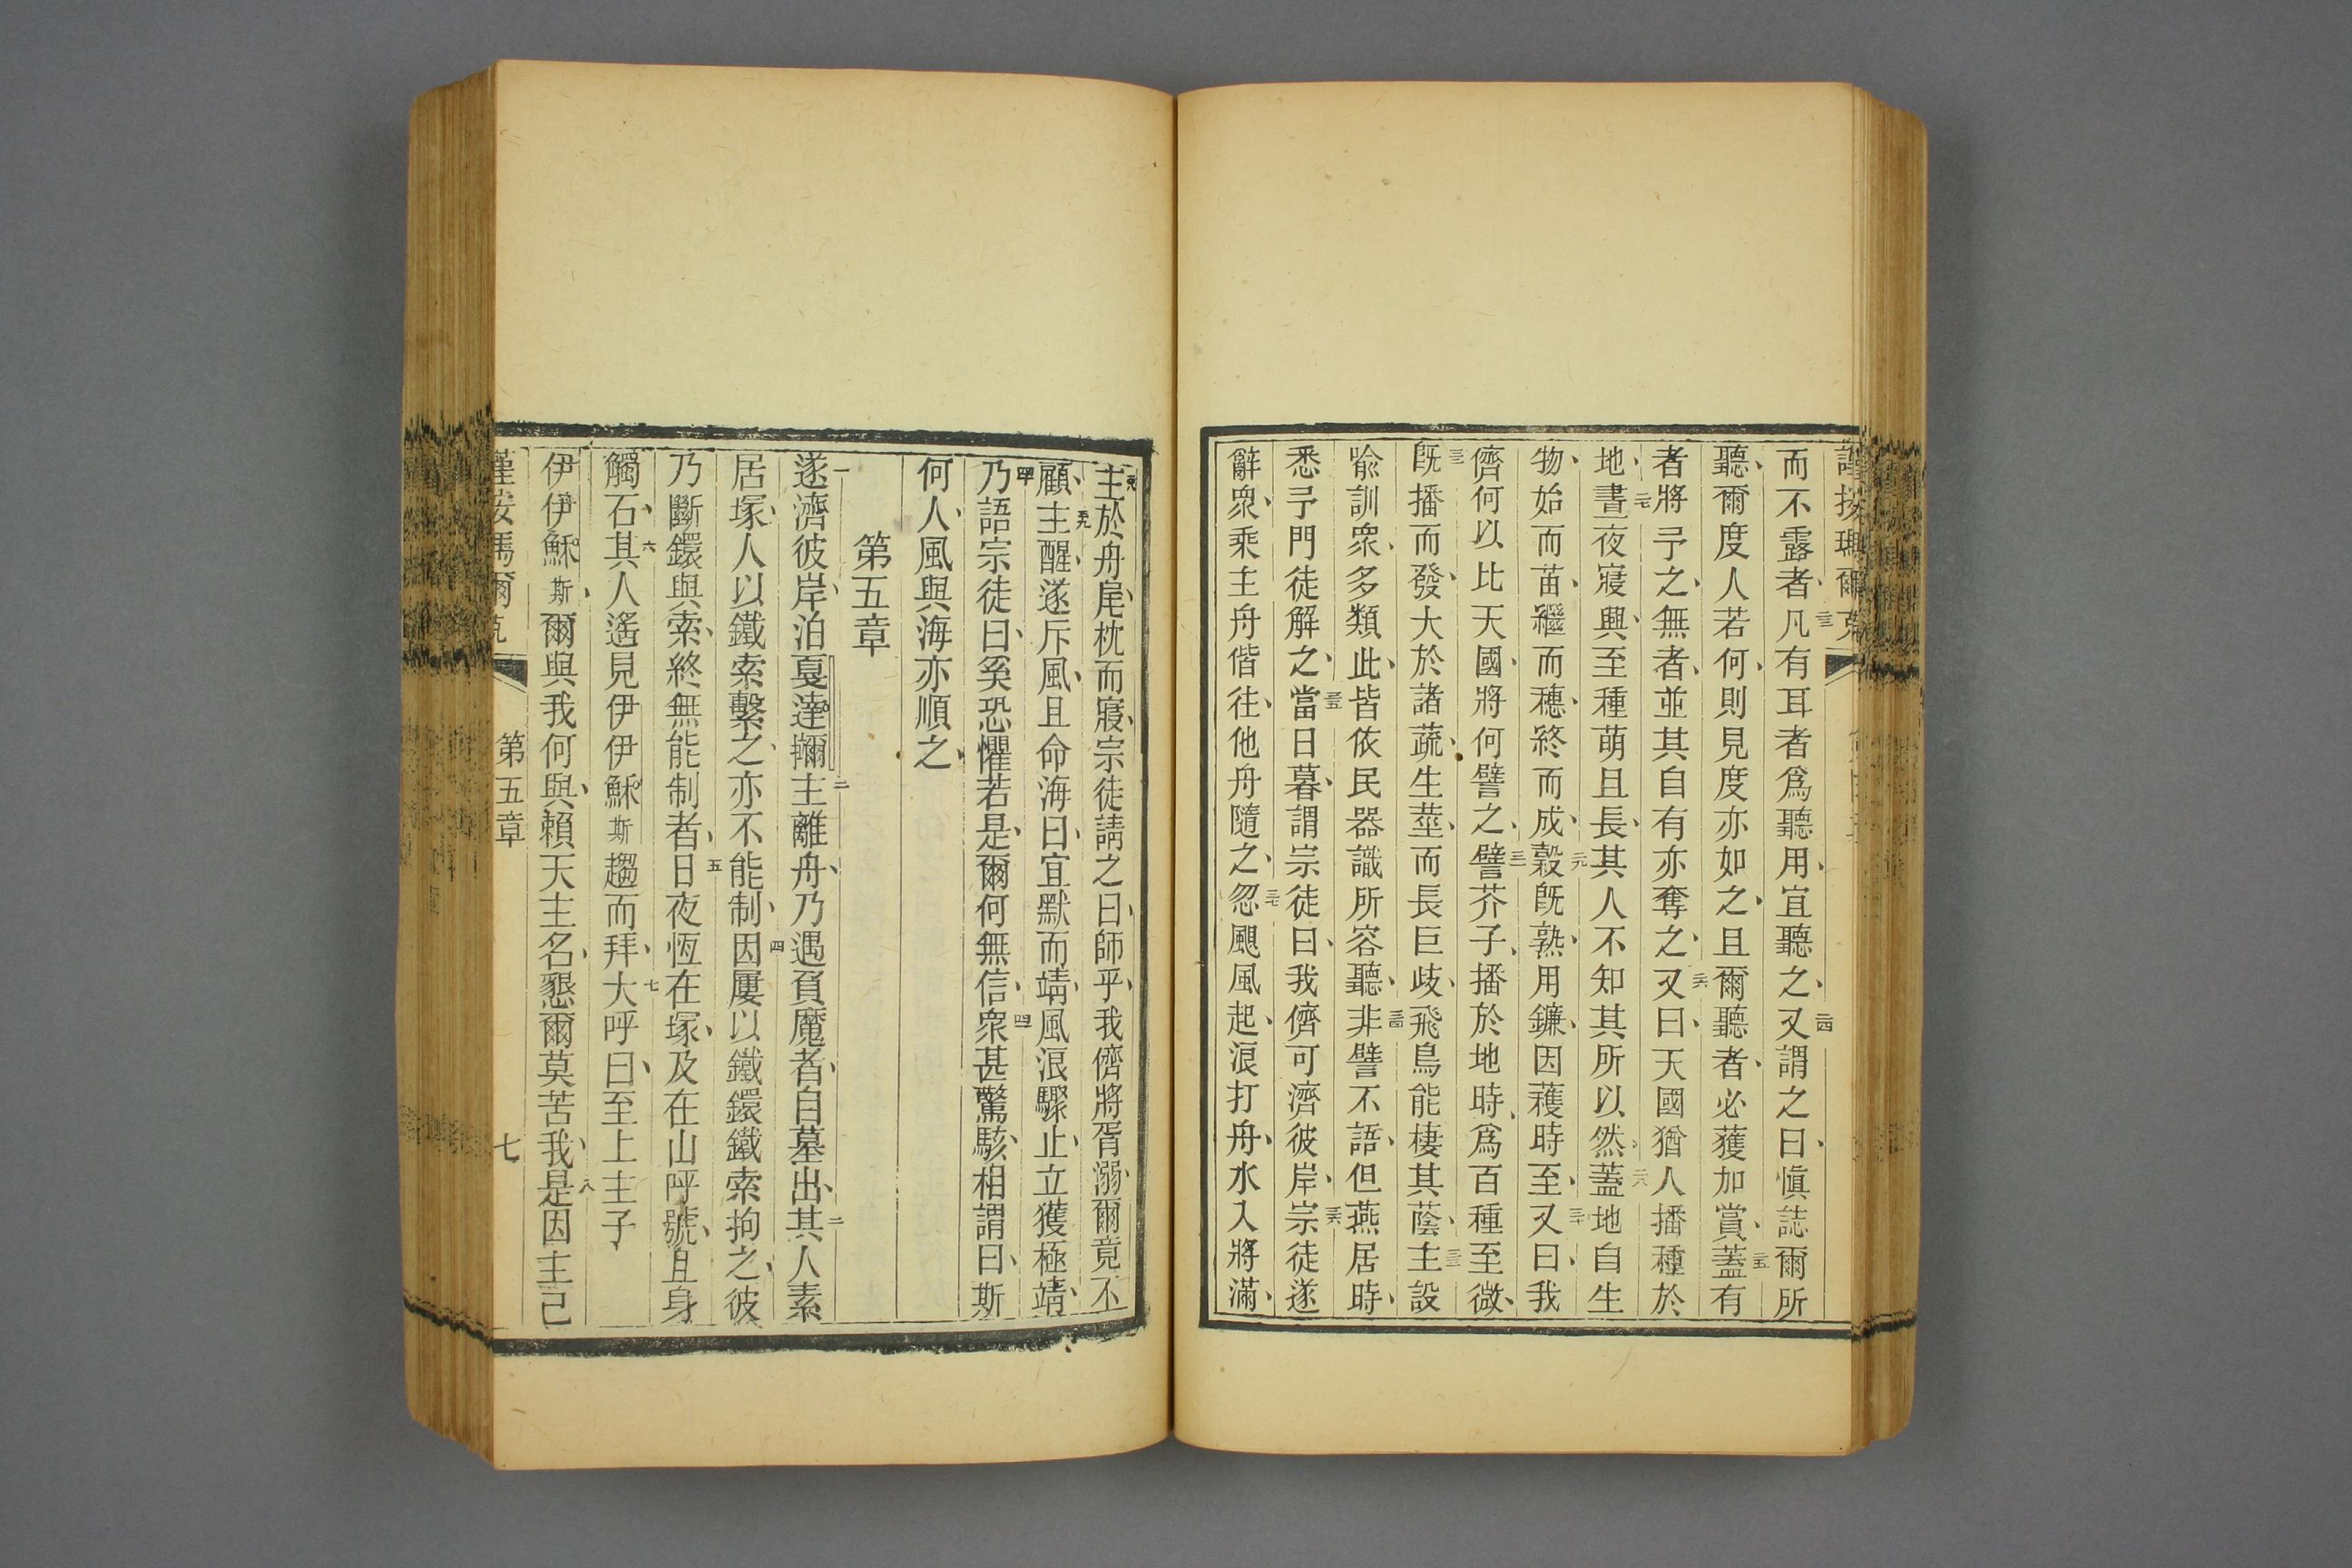 謹按瑪爾克
而不露者、二三凡有耳者爲聽用、宜聽之、二四又謂之曰、愼誌爾所
聽、爾度人若何、則見度亦如之、且爾聽者、必獲加賞、二五蓋有
者將予之、無者、並其自有亦奪之、二六又曰、天國猶人播種於
地、二七晝夜寢興、至種萌且長、其人不知其所以然、二八蓋地自生
物、始而苗、繼而穗、終而成、二九榖旣熟、用鐮、因穫時至、三十又曰、我
儕何以比天國、將何譬之、三一譬芥子、播於地時、爲百種至微、
三二旣播而發、大於諸蔬、生莖、而長巨歧、飛鳥能棲其蔭、三三主設
喩訓衆、多類此、皆依民器識所容聽、三四非譬不語、但燕居時、
悉予門徒解之、三五當日暮、謂宗徒曰、我儕可濟彼岸、三六宗徒遂
辭衆、乘主舟偕往、他舟隨之、三七忽颶風起、浪打舟、水入將滿、
三八主於舟尾、枕而寢、宗徒請之曰、師乎、我儕將胥溺、爾竟不
顧、三九主醒、遂斥風、且命海曰、宜默而靖、風浪驟止、立獲極靖、
四十乃語宗徒曰、奚恐懼若是、爾何無信、四一衆甚驚駭、相謂曰、斯
何人、風與海亦順之、
第五章
一遂濟彼岸、泊戛達𤣳主離舟、乃遇負魔者、自墓出、三其人素
居塚、人以鐵索繫之、亦不能制、四因屢以鐵鐶鐵索拘之、彼
乃斷鐶與索、終無能制者、五日夜恆在塚、及在山呼號、且身
觸石、六其人遙見伊伊穌斯趨而拜、七大呼曰、至上主子、
伊伊穌斯、爾與我何與、賴天主名、懇爾莫苦我、八是因主已
謹按瑪爾克
第五章
七